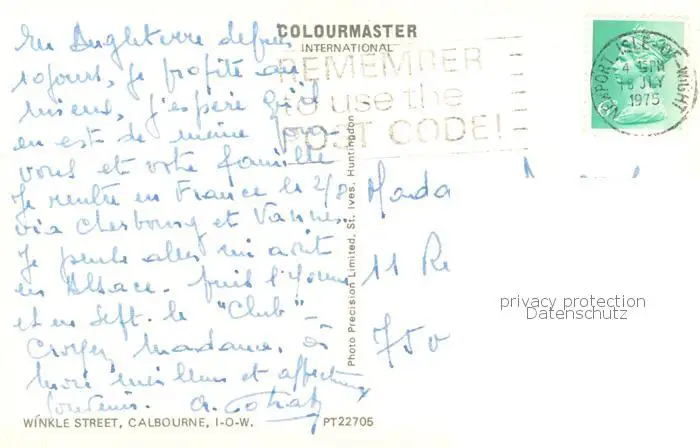 COLOURMASTER
INTERNATIONAL
REMEMBER
to use the
POST CODE!
NEWPORT ISLE-OF-WIGHT
4 15PM
15 JLY
1975
En Angleterre depuis
10 jours, je profite au
mieux, j'espère qu'il
en est de même pour
vous et votre famille
Je rentre en France le 2/8
via Cherbourg et Vannes.
Je pense aller mi août
en Alsace. puis l'Yonne
et en Sept. le "Club" -
Croyez, Madame, à
mon meilleur et affectueux
souvenir.
Mada
11 Re
750
privacy protection
Datenschutz
Photo Precision Limited, St. Ives, Huntingdon
WINKLE STREET, CALBOURNE, I-O-W. PT22705